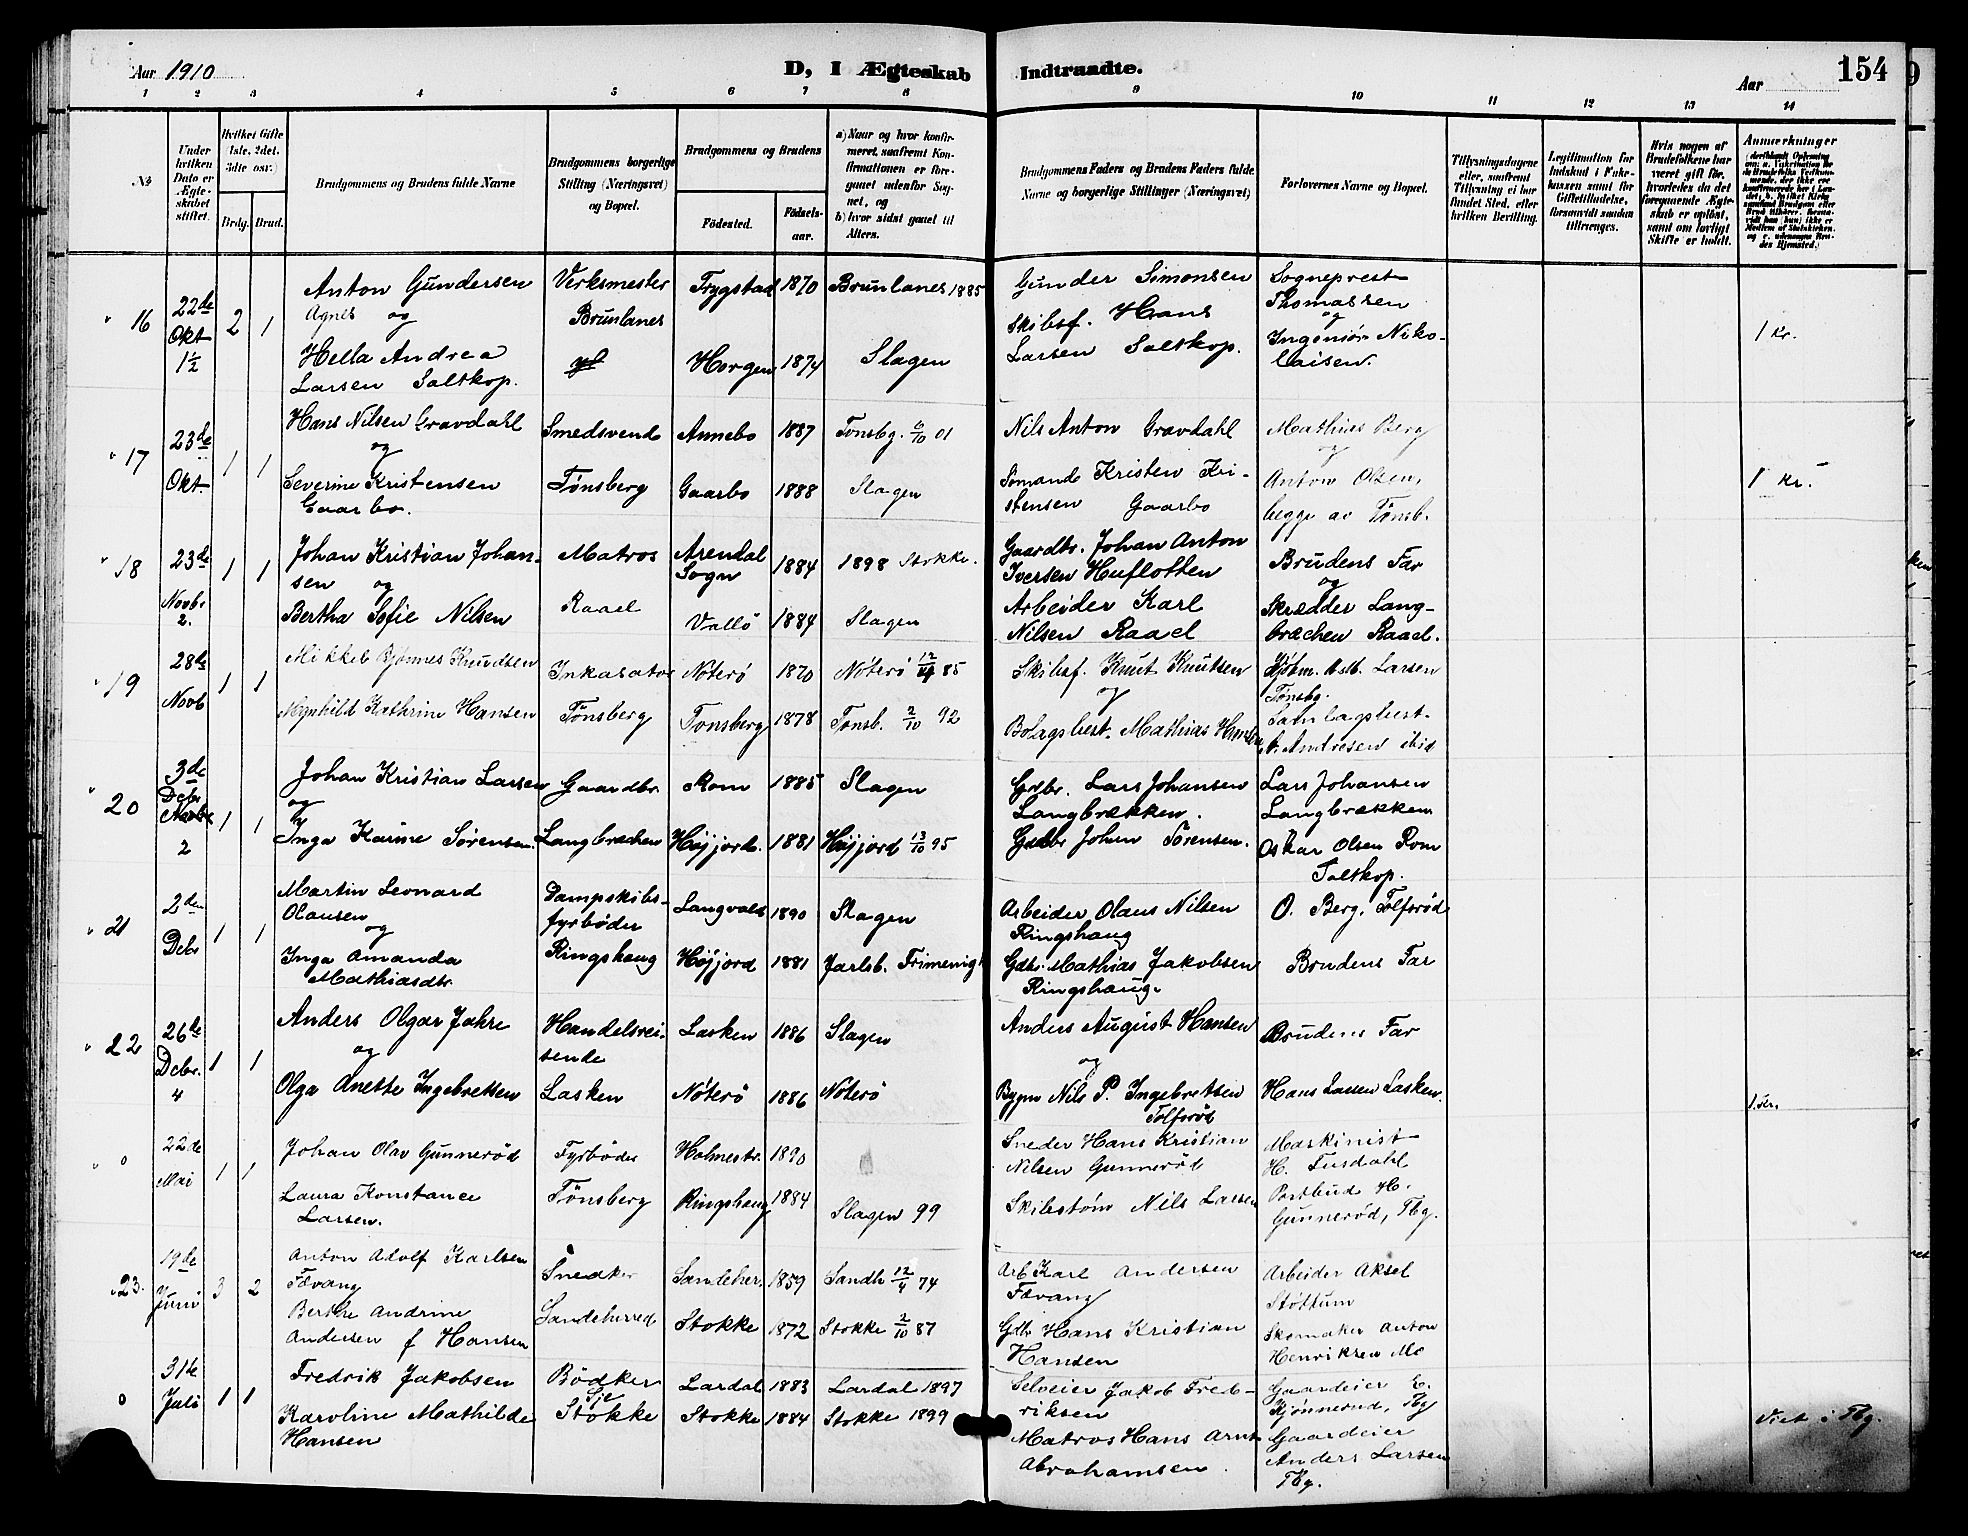 Aar 1910
D, I Ægteskab Indtraadte.
Aar
154
1 2 3 4 5 6 7 8 9 10 11 12 13 14
No
Under hvilken Dato er Ægteskabet stiftet.
Hvilket Gifte (1ste, 2det, 3die osv.)
Brdg. Brud.
Brudgommens og Brudens fulde Navne
Brudgommens borgerlige Stilling (Næringsvei) og Bopæl.
Brudgommens og Brudens
Födested.
Födsels-aar.
a) Naar og hvor konfirmeret, saafremt Konfirmationen er foregaaet udenfor Sognet, og
b) hvor sidst gaaet til Alters.
Brudgommens Faders og Brudens Faders fulde Navne og borgerlige Stillinger (Næringsvei)
Forlovernes Navne og Bopæl.
Tillysningsdagene eller, saafremt Tillysning ei har fundet Sted, efter hvilken Bevilling.
Legitimation for Indskud i Enkekassen samt for Giftetilladelse, forsaavidt saadan tiltrænges.
Hvis nogen af Brudefolkene har været gift för, hvorledes da det foregaaende Ægteskab er oplöst, samt om lovligt Skifte er holdt.
Anmærkninger
" 16 22de Okt 1½ 2 1
Anton Gundersen
Agnes og
Hella Andrea
Larsen Saltkop.
Verksmester
Brunlanes
Trygstad 1870 Brunlanes 1885
Horgen 1874 Slagen
Gunder Simonsen
Skibsf. Hans
Larsen Saltkop.
Sogneprest
Thomassen
og
Ingeniör Niko-
laisen.
1 Kr.
" 17 23de Okt. 1 1
Hans Nilsen Gravdahl
og
Severine Kristensen
Gaarbo.
Smedsvend
Tønsberg
Annebo 1887 Tønsbg. 6/10 01
Gaarbo 1888 Slagen
Nils Anton Gravdahl
Sömand Kristen Kri-
stensen Gaarbo
Mathias Berg
og
Anton Olsen,
begge av Tønsb.
1 Kr.
" 18 23de Novb. 2. 1 1
Johan Kristian Johan-
sen og
Bertha Sofie Nilsen
Matros
Raael
Arendal
Sogn 1884 1898 Stokke.
Vallö 1884 Slagen
Gaardbr. Johan Anton
Iversen Huflotten
Arbeider Karl
Nilsen Raael
Brudens Far
og
Skrædder Lang-
bræchen Raael.
" 19 28de Novb 1 1
Mikkel Bjønnes Knudsen
Mynhild Kathrine Hansen
Inkasator
Tönsberg
Nöterö 1870 Nöterö 12/4 85
Tonsberg 1878 Tønsb. 2/10 92
Skibsf. Knut Knutsen
og
Bolagsbest. Mathias Hansen
Kjøbm. Larsen
Tønsbg.
Samlagsbest.
Andresen ibid
" 20 3de Debr 2 1 1
Johan Kristian Larsen
og
Inga Karine Sørensen.
Gaardbr.
Langbræchen
Rom 1885 Slagen
Höjjord. 1881 Höjjord 13/10 95
Grdbr. Lars Johansen
Langbrækken.
Gdbr Johan Sörensen.
Lars Johansen
Langbrækken
Oskar Olsen Rom
Saltkop.
" 21 2den Debr 1 1
Martin Leonard
Olausen
og
Inga Amanda
Mathiasdtr.
Dampskibs-
fyrbøder
Ringshaug
Langvald 1890 Slagen
Höjjord 1881 Jarlsb. Frimenigh
Arbeider Olaus Nilsen
Ringshaug
Gdbr. Mathias Jakobsen
Ringshaug.
O. Berg. Tolfsrød
Brudens Far
" 22 26de Debr. 4 1 1
Anders Olgar Jahre
og
Olga Anette Ingebretsen
Handelsrei-
sende
Lasken
Lasken 1886 Slagen
Nöterö 1886 Nöterö
Anders August Hansen
og
Bygm Nils P. Ingebretsen
Tolfsröd
Brudens Far
Hans Larsen Lasken.
1 Kr.
" 0 22de Mai 1 1
Johan Olav Gunnerød
Laura Konstance
Larsen.
Fyrbøder
Tönsberg
Holmestr. 1890
Ringshaug 1884 Slagen 99
Sneder Hans Kristian
Nilsen Gunnerød
Skibstøm Nils Larsen
Maskinist
H. Tusdahl
Postbud H.
Gunnerød, Tbg.
" 23. 19de Juni 3 2
Anton Adolf Karlsen
Fævang
Berthe Andrine
Andersen f Hansen
Snedker
Sandeherred
Sandeher. 1859 Sandh 12/4 74
Stokke 1872 Stokke 2/10 87
Arb Karl Andersen
Fævang
Gdbr Hans Kristian
Hansen
Arbeider Aksel
Støttum
Skomaker Anton
Henriksen Mo
0 31te Juli 1 1
Fredrik Jakobsen
Karoline Mathilde
Hansen
Bödker
Sje
Stokke
Lardal 1883 Lardal 1897
Stokke 1884 Stokke 1899
Selveier Jakob Fred-
riksen
Matros Hans Arnt
Abrahamsen.
Gaardeier E.
Kjønnerud, Tbg
Gaardeier
Anders Larsen
Tbg.
Viet i Tbg.